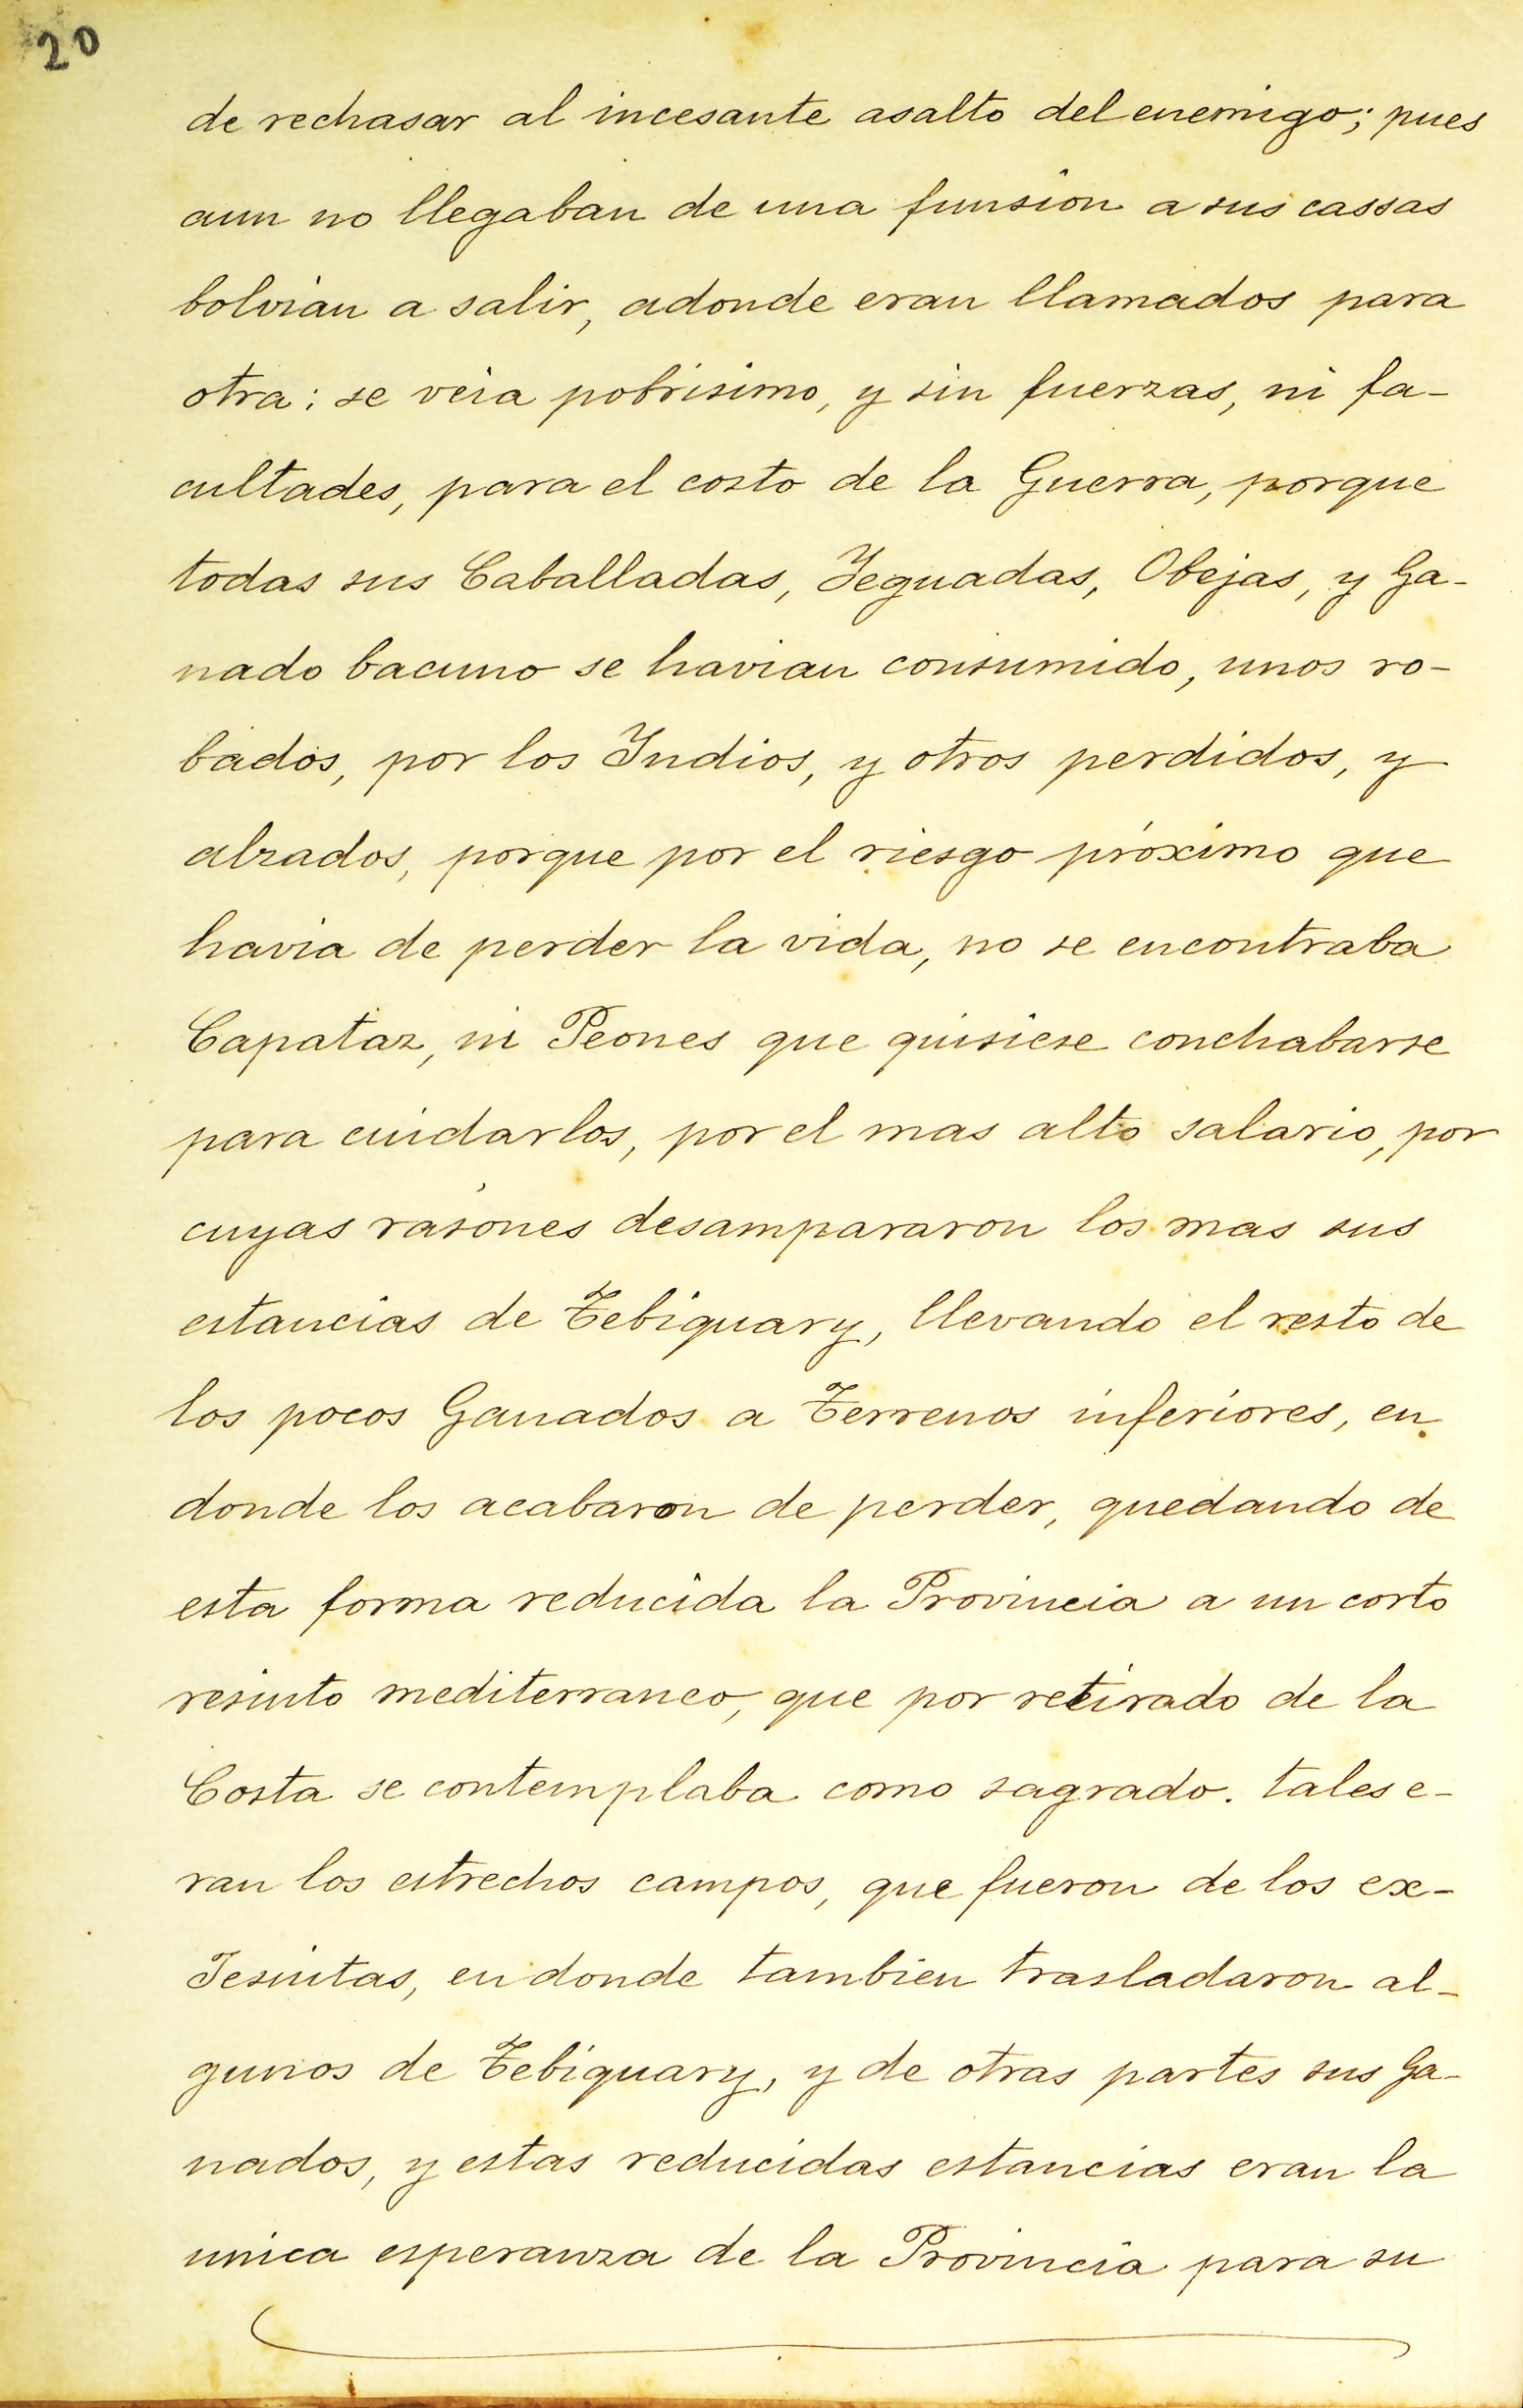 20
de rechasar al incesante asalto del enemigo; pues
aun no llegaban de una funsion a sus cassas
bolvian a salir, adonde eran llamados para
otra: se veia pobrisimo, y sin fuerzas, ni fa-
cultades, para el costo de la Guerra, porque
todas sus Caballadas, Yeguadas, Obejas, y Ga-
nado bacuno se havian consumido, unos ro-
bados, por los Yndios, y otros perdidos, y
alzados, porque por el riesgo próximo que
havia de perder la vida, no se encontraba
Capataz, ni Peones que quisiese conchabarse
para cuidarlos, por el mas alto salario, por
cuyas rasones desampararon los mas sus
estancias de Tebiquary, llevando el resto de
los pocos Ganados a Terrenos inferiores, en
donde los acabaron de perder, quedando de
esta forma reducida la Provincia a un corto
resinto mediterraneo, que por retirado de la
Costa se contemplaba como sagrado. tales e-
ran los estrechos campos, que fueron de los ex-
Jesuitas, en donde tambien trasladaron al-
gunos de Tebiquary, y de otras partes sus Ga-
nados, y estas reducidas estancias eran la
unica esperanza de la Provincia para su